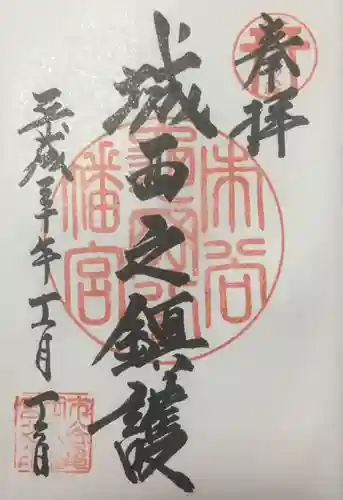 奉拝
城西之鎮護
市谷
亀岡八
幡宮
平成三十年十一月